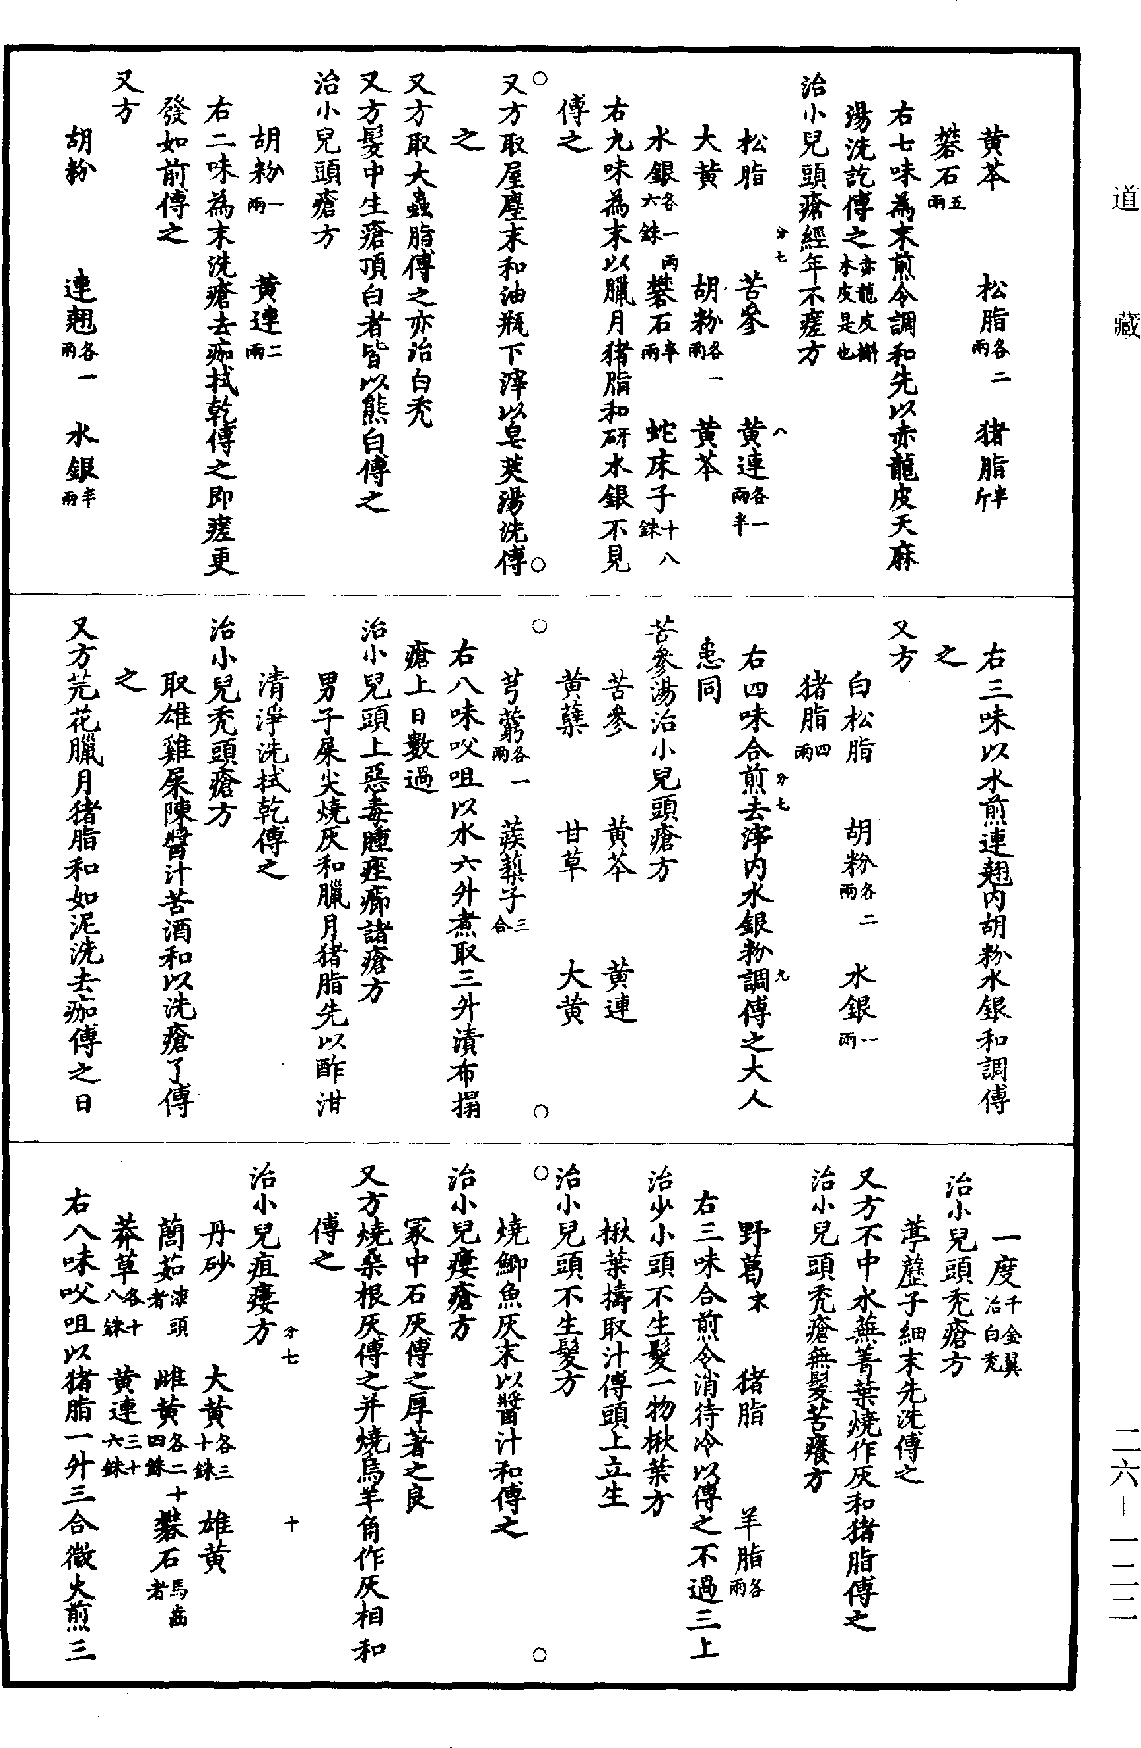 道藏
黃芩　松脂各二兩　猪脂半斤
礬石五兩
右七味為末煎令調和先以赤龍皮天麻
湯洗訖傅之赤龍皮槲木皮是也
治小兒頭瘡經年不瘥方
松脂　苦參　黃連各一兩半
分七　八
大黃　胡粉各一兩　黃芩
水銀各一兩六銖　礬石半兩　蛇床子十八銖
右九味為末以臘月猪脂和研水銀不見
傅之
又方取屋塵末和油瓶下滓以皂莢湯洗傅
之
又方取大蟲脂傅之亦治白禿
又方髮中生瘡頂白者皆以熊白傅之
治小兒頭瘡方
胡粉一兩　黃連二兩
右二味為末洗瘡去痂拭乾傅之即瘥更
發如前傅之
又方
胡粉　連翹各一兩　水銀半兩
右三味以水煎連翹內胡粉水銀和調傅
之
又方
白松脂　胡粉各二兩　水銀一兩
猪脂四兩
右四味合煎去滓內水銀粉調傅之大人
分七　九
患同
苦參湯治小兒頭瘡方
苦參　黃芩　黃連
黃蘗　甘草　大黃
芎藭各一兩　蒺蔾子三合
右八味㕮咀以水六升煮取三升漬布搨
瘡上日數過
治小兒頭上惡毒腫痤癤諸瘡方
男子屎尖燒灰和臘月猪脂先以酢泔
清淨洗拭乾傅之
治小兒禿頭瘡方
取雄雞屎陳醬汁苦酒和以洗瘡了傅
之
又方芫花臘月猪脂和如泥洗去痂傅之日
一度千金翼治白禿
治小兒頭禿瘡方
葶藶子細末先洗傅之
又方不中水蕪菁葉燒作灰和猪脂傅之
治小兒頭禿瘡無髮苦癢方
野葛末　猪脂　羊脂各兩
右三味合煎令消待冷以傅之不過三上
治少小頭不生髮一物楸葉方
楸葉擣取汁傅頭上立生
治小兒頭不生髮方
燒鯽魚灰末以醬汁和傅之
治小兒瘻瘡方
冢中石灰傅之厚著之良
又方燒桑根灰傅之并燒烏羊角作灰相和
傅之
治小兒疽瘻方
分七　十
丹砂　大黃各三十銖　雄黃
䕡茹漆頭者　雌黃各二十四銖　礬石馬齒者
莽草各十八銖　黃連三十六銖
右八味㕮咀以猪脂一升三合微火煎三
二六－一二二